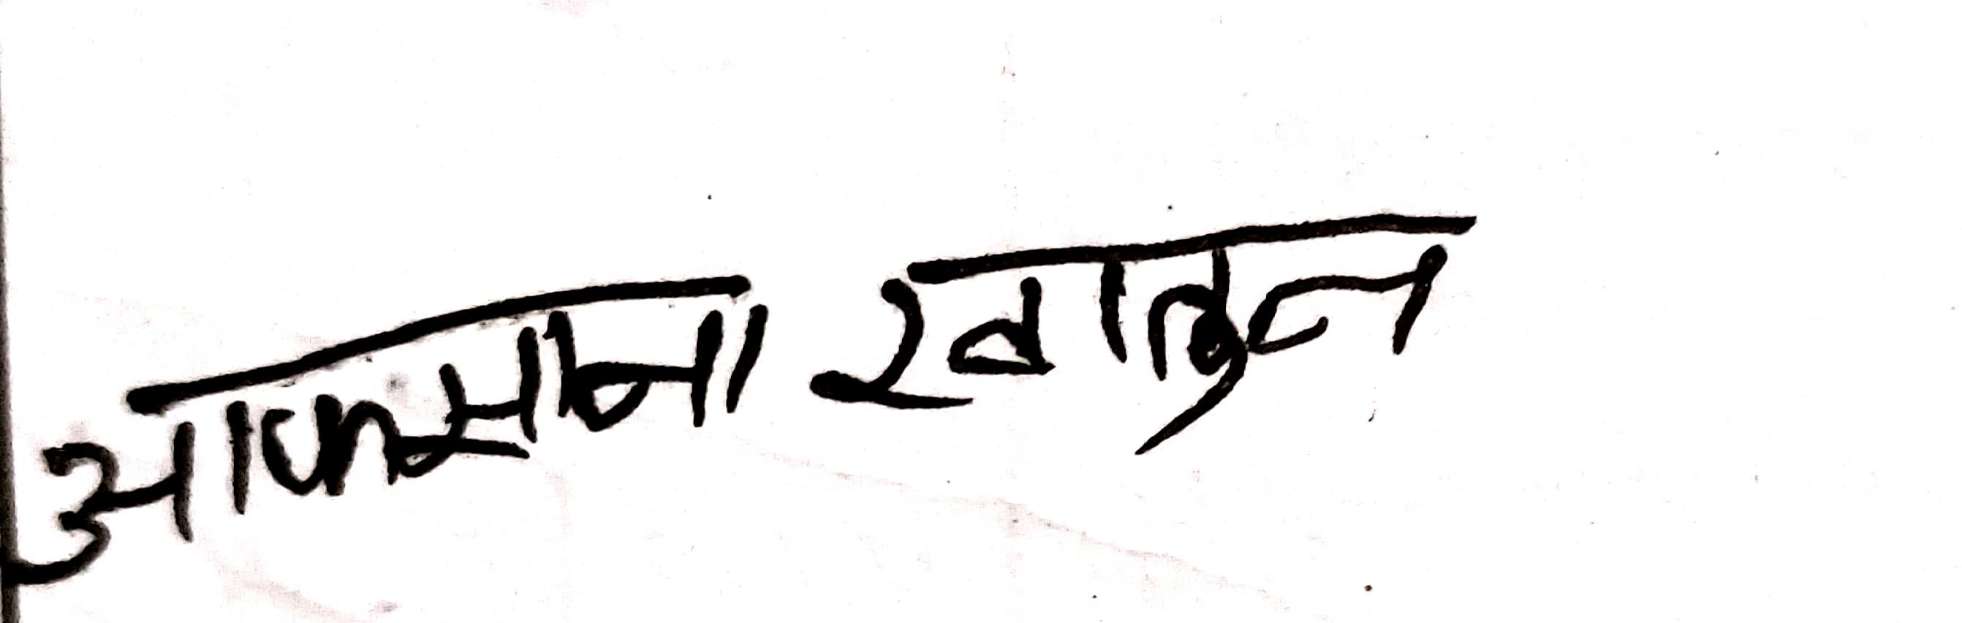 आफसाना खातुन